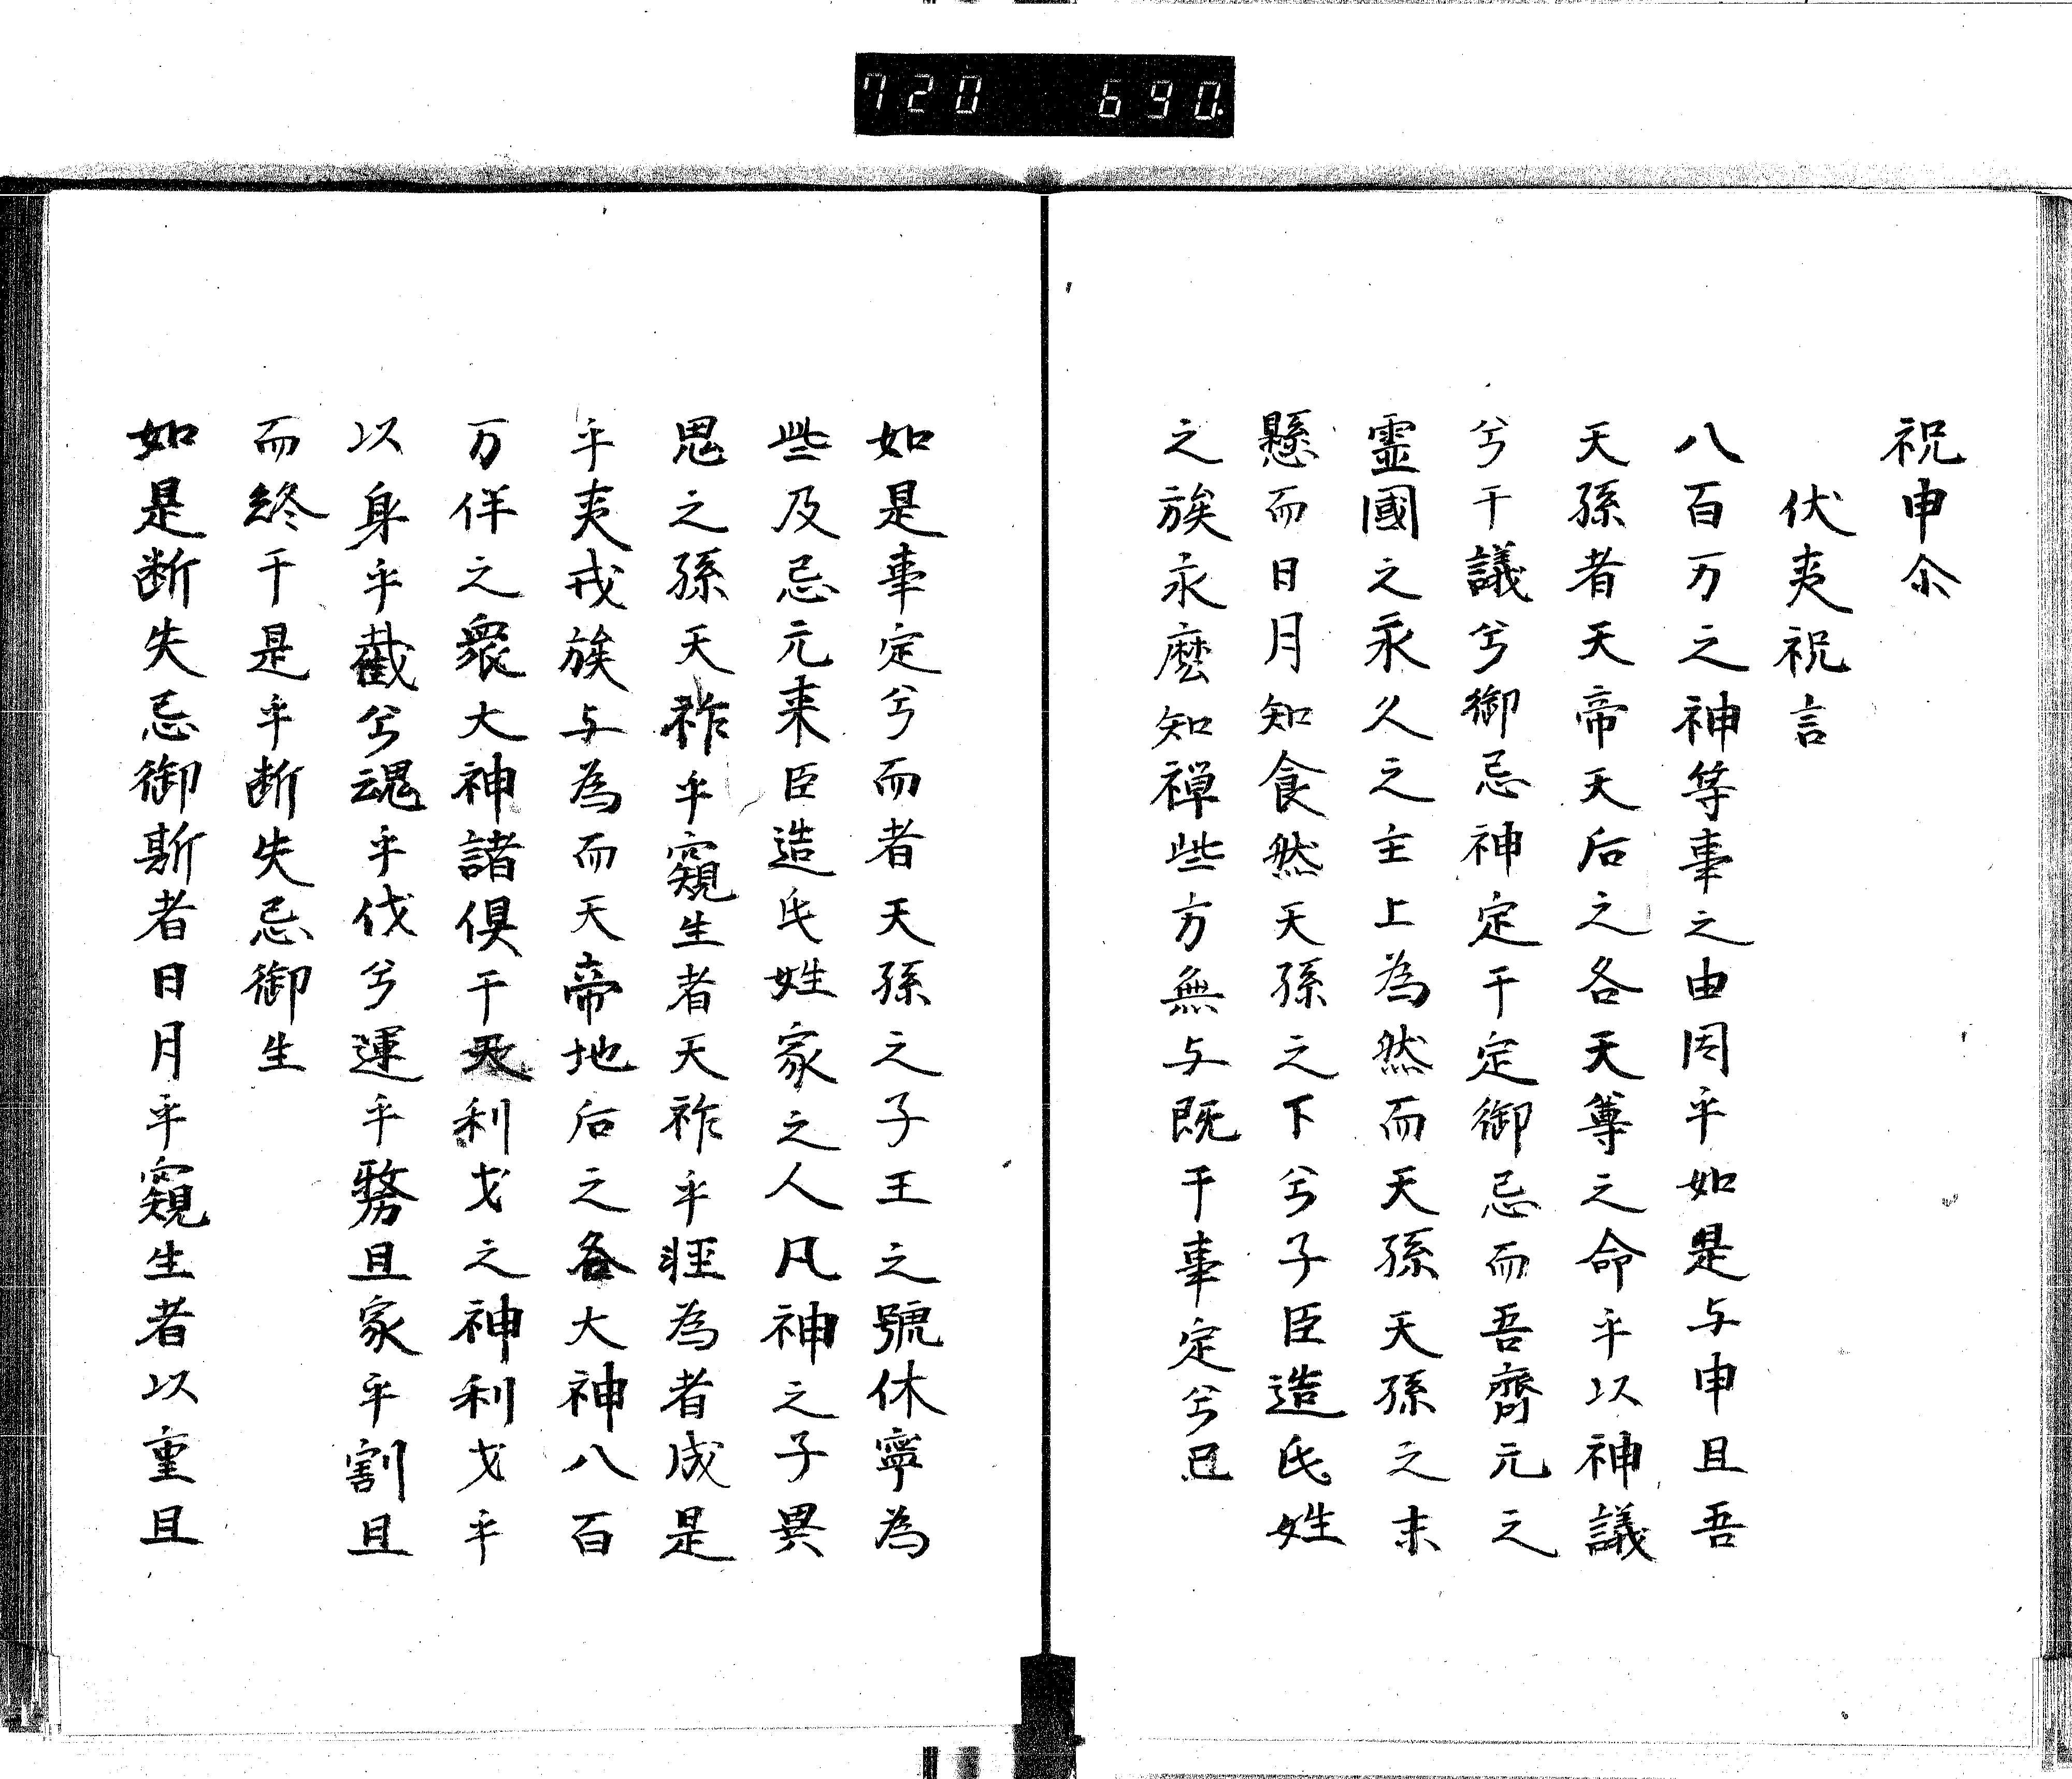 720 690.
祝申尒
伏夷祝言
八百万之神等事之由因乎如是与申且吾
天孫者天帝天后之各天尊之命乎以神議
兮于議兮御忌神定于定御忌而吾齊元之
靈國之永久之主上為然而天孫天孫之末
懸而日月知食然天孫之下兮子臣造氏姓
之族永麼知禅些方無与既于事定兮已
如是事定兮而者天孫之子王之號休寧為
些及忌元来臣造氏姓家之人凡神之子異
思之孫天祚乎窺生者天祚乎䏏為者成是
乎夷戎族与為而天帝地后之各大神八百
万佯之衆大神諸倶于天利戈之神利戈乎
以身乎截兮魂乎伐兮運乎務且家乎割且
而終于是乎断失忌御生
如是断失忌御斯者日月乎窺生者以重且